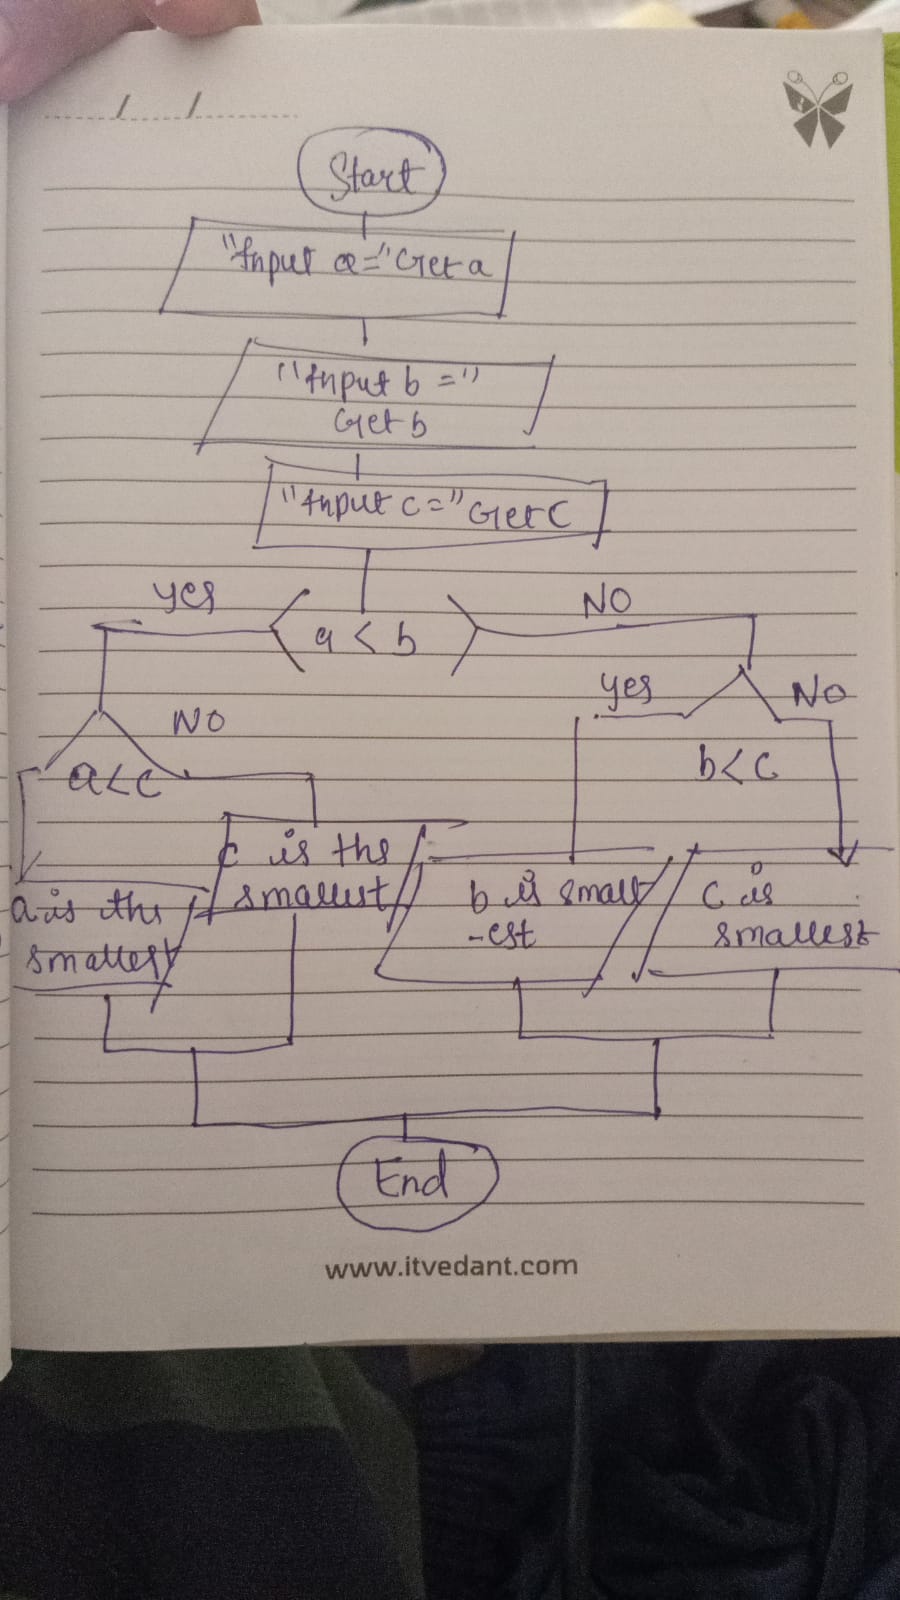 Start
"Input a=" Get a
"Input b ="
Get b
"Input c=" Get C
yes
NO
a < b
yes
NO
NO
b<c
a<c
c is the
smallest
a is the
smallest
b is small
-est
C is
smallest
End
www.itvedant.com